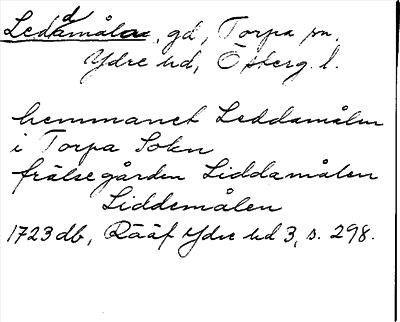 Leddamåla, gd, Torpa sn.
Ydre hd, Österg. l.
hemmanet Leddamålen
i Torpa Sokn
frälsegården Liddamålen
Liddemålen
1723 db, Rääf Ydre hd 3, s. 298.